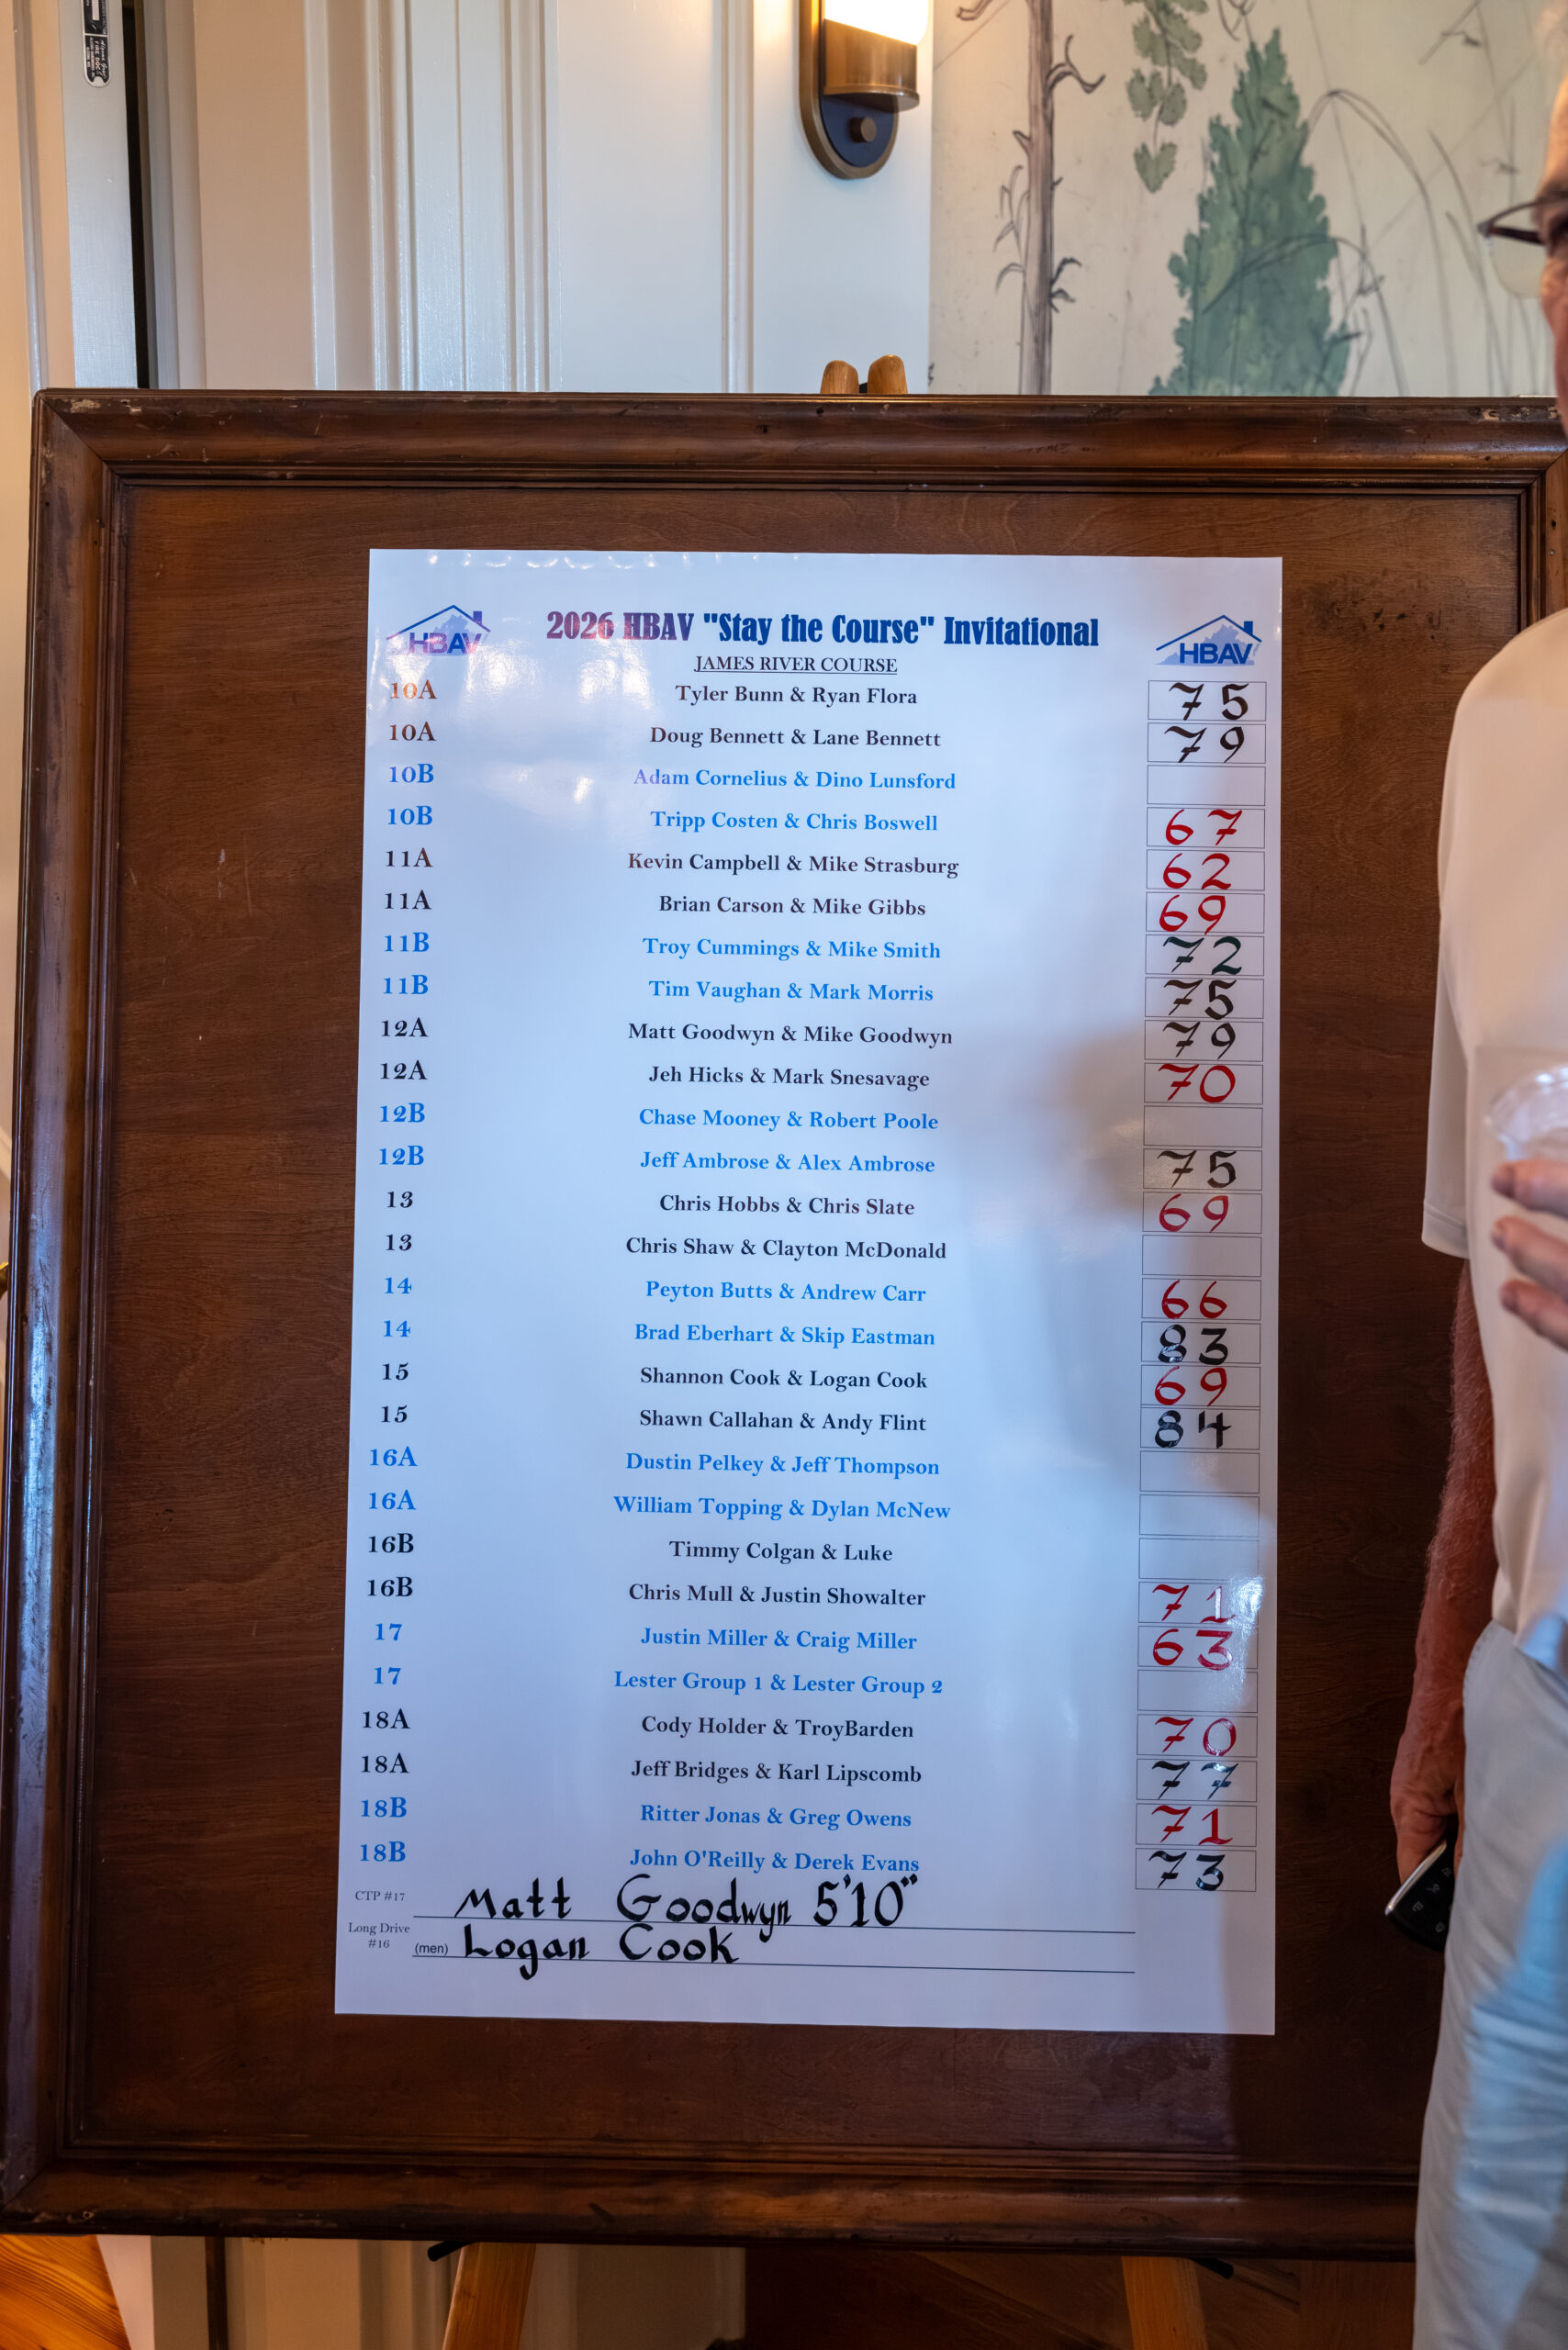 2026 HBAV "Stay the Course" Invitational
HBAV
HBAV
JAMES RIVER COURSE
10A Tyler Bunn & Ryan Flora 75
10A Doug Bennett & Lane Bennett 79
10B Adam Cornelius & Dino Lunsford
10B Tripp Costen & Chris Boswell 67
11A Kevin Campbell & Mike Strasburg 62
11A Brian Carson & Mike Gibbs 69
11B Troy Cummings & Mike Smith 72
11B Tim Vaughan & Mark Morris 75
12A Matt Goodwyn & Mike Goodwyn 79
12A Jeh Hicks & Mark Snesavage 70
12B Chase Mooney & Robert Poole
12B Jeff Ambrose & Alex Ambrose 75
13 Chris Hobbs & Chris Slate 69
13 Chris Shaw & Clayton McDonald
14 Peyton Butts & Andrew Carr 66
14 Brad Eberhart & Skip Eastman 83
15 Shannon Cook & Logan Cook 69
15 Shawn Callahan & Andy Flint 84
16A Dustin Pelkey & Jeff Thompson
16A William Topping & Dylan McNew
16B Timmy Colgan & Luke
16B Chris Mull & Justin Showalter 71
17 Justin Miller & Craig Miller 63
17 Lester Group 1 & Lester Group 2
18A Cody Holder & TroyBarden 70
18A Jeff Bridges & Karl Lipscomb 77
18B Ritter Jonas & Greg Owens 71
18B John O'Reilly & Derek Evans 73
CTP #17 Matt Goodwyn 5'10"
Long Drive
#16 (men) Logan Cook